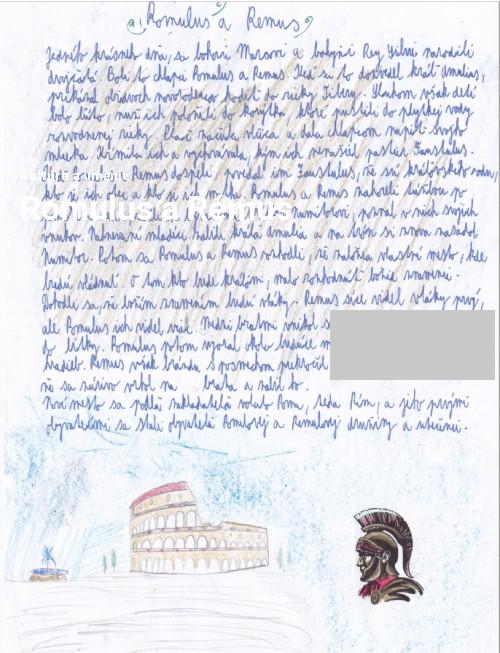 Romulus a Remus
Jedného krásneho dňa, sa bohovi Marsovi a bohyni Rey Silvii narodili
dvojčatá. Boli to chlapci Romulus a Remus. Keď sa to dozvedel kráľ Amulius,
prikázal obidvoch novorodencov hodiť do rieky Tibery. Sluhom však detí
bolo ľúto, nuž ich položili do korýtka, ktoré pustili do plytkej vody
rozvodnenej rieky. Plač začula vlčica a dala chlapcom napiť svojho
mlieka. Kŕmila ich a vychovávala, kým ich nenašiel pastier Faustulus.
Kultúra a umenie
Remus dospeli povedal im Faustulus, že sú kráľovského rodu,
Romulus a Remus
kto je ich otec a kto je ich matka. Romulus a Remus zatúžili po
Numitorovi, poznal v nich svojich
vnukov. Nahnevaní mladíci zabili kráľa Amulia a na trón si znovu zasadol
Numitor. Potom sa Romulus a Remus rozhodli, že založia vlastné mesto, kde
budú vládnuť. O tom kto bude kráľom, malo rozhodnúť božie znamenie.
Dohodli sa, že božím znamením budú vtáky. Remus síce videl vtáky prvý,
ale Romulus ich videl viac. Medzi bratmi vnikol s
do bitky. Romulus potom vyoral okolo budúce m
hradieb. Remus však brázdu s posmechom prekročil
že sa zúrivo vrhol na brata a zabil ho.
Nové mesto sa podľa zakladateľa volalo Roma, teda Rím, a jeho prvými
obyvateľmi sa stali obyvatelia Romulovej a Remulovej družiny a utečenci.